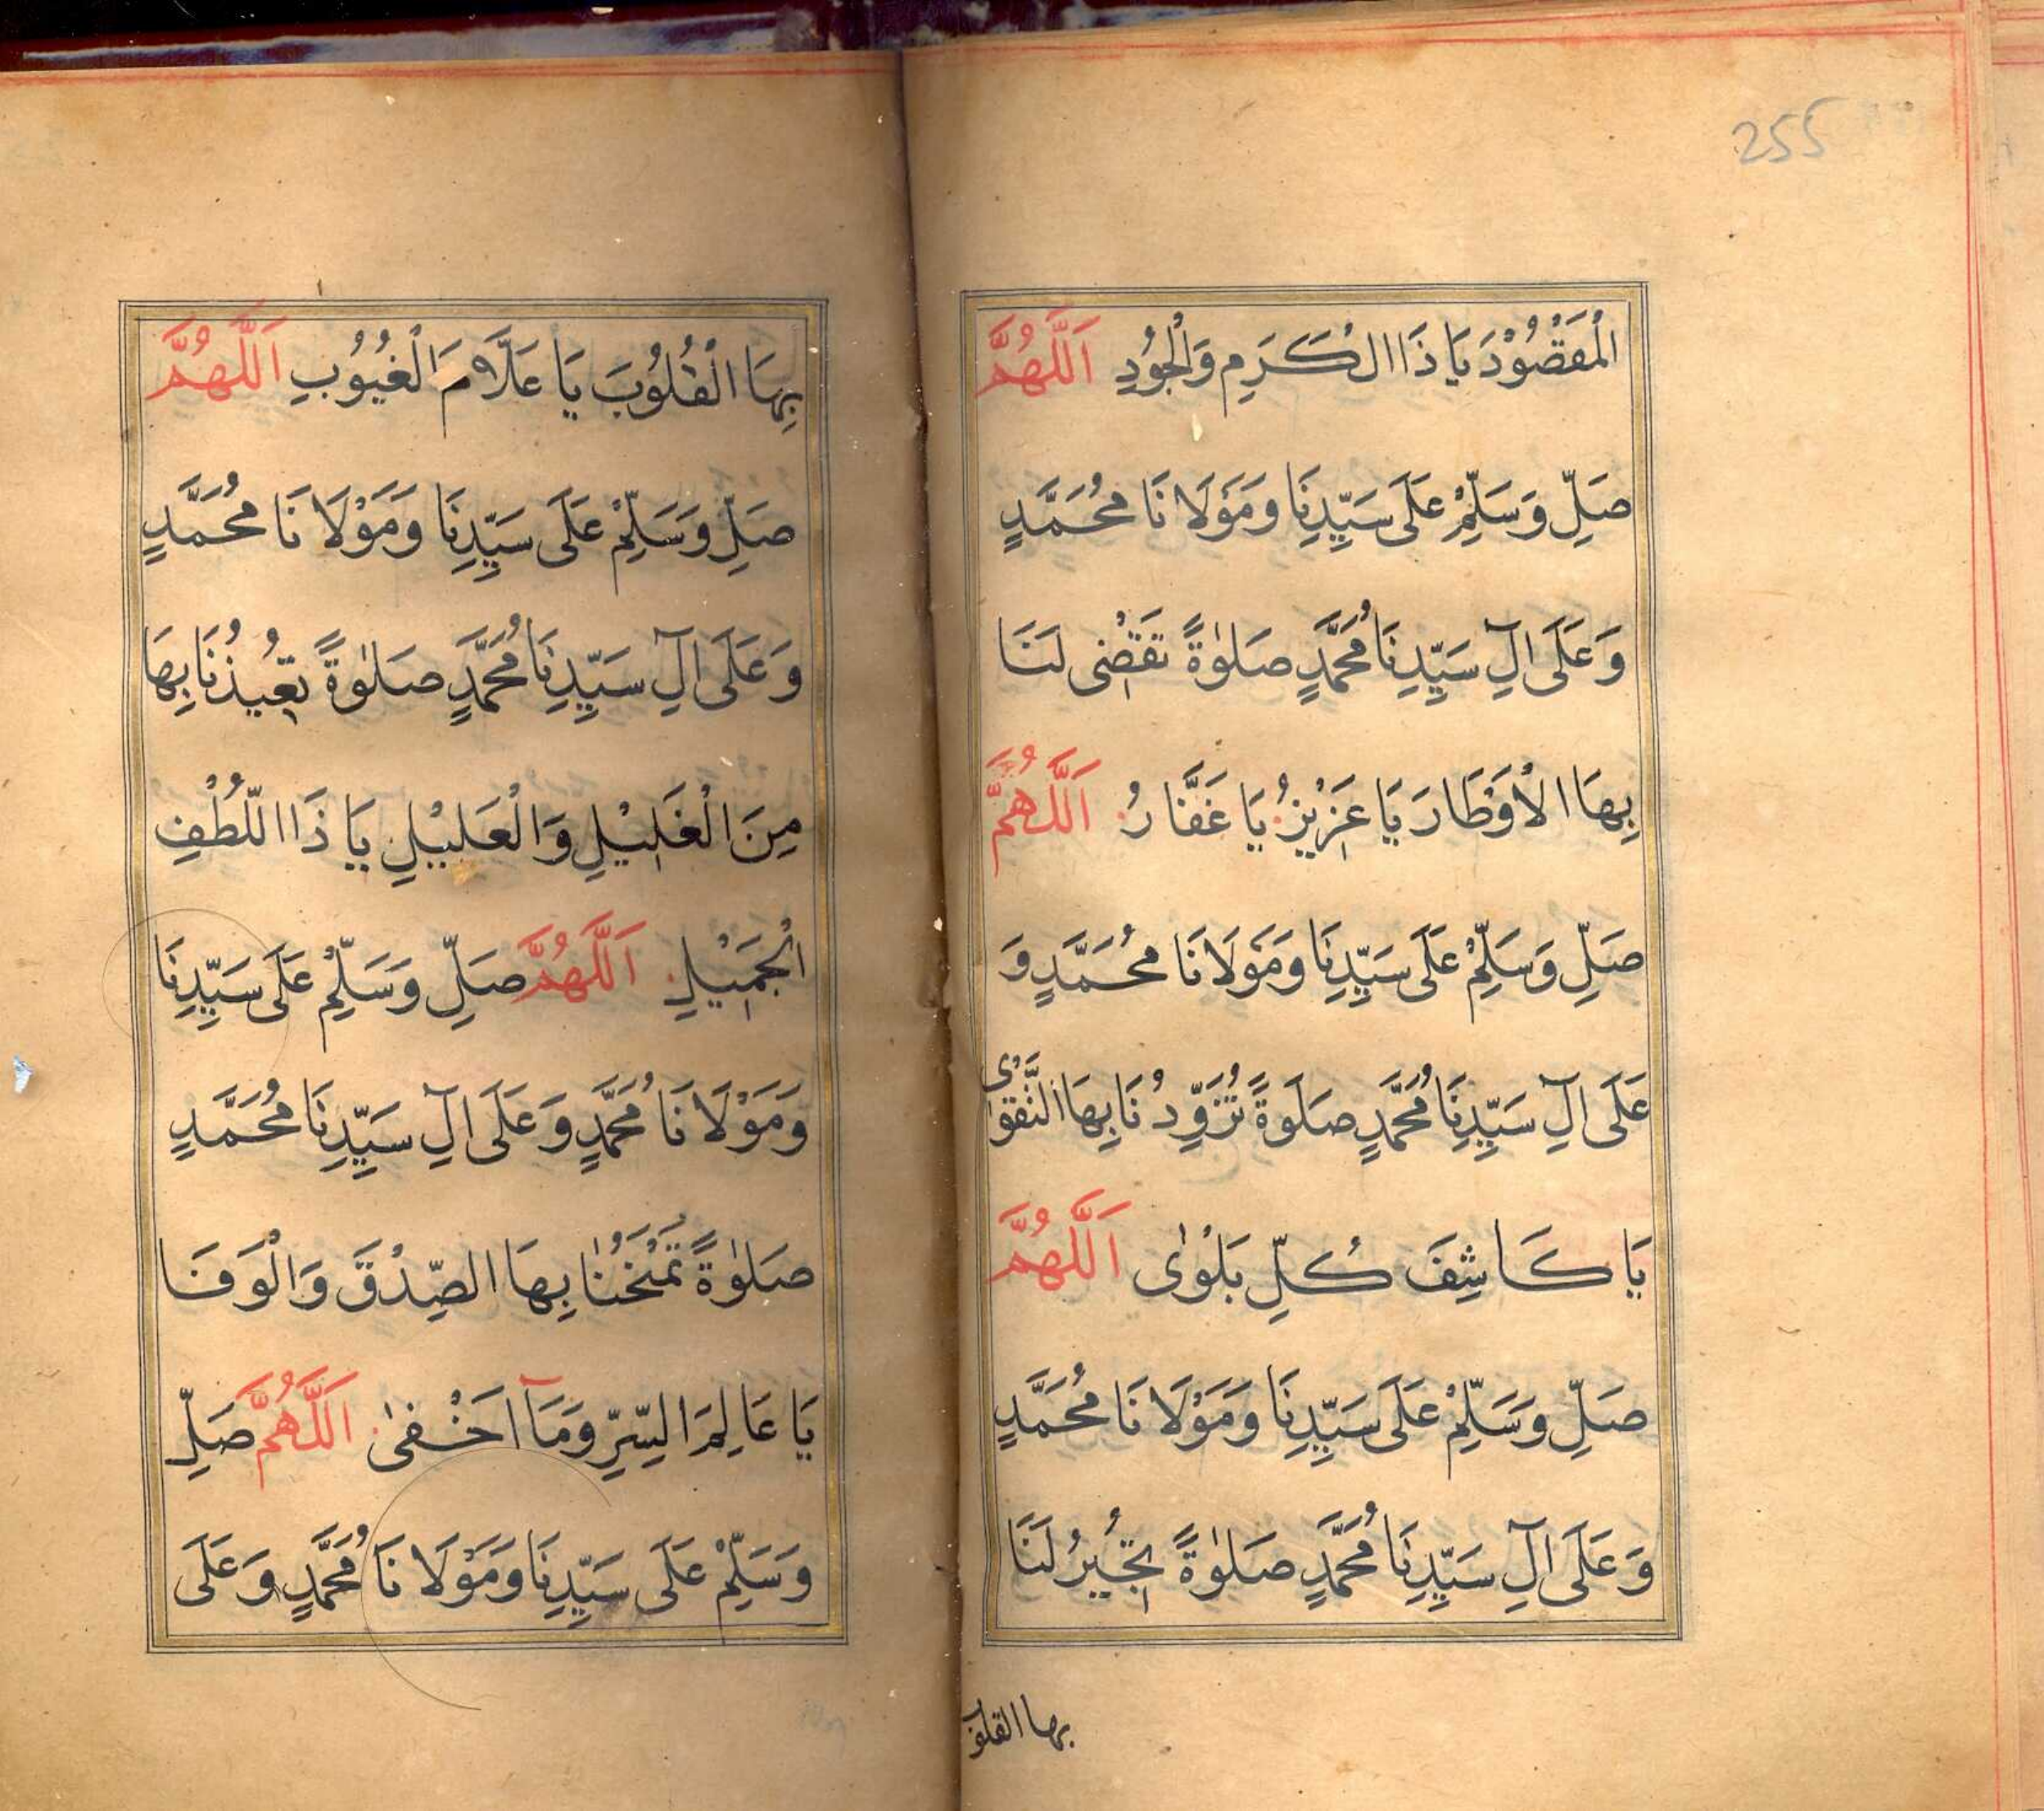 255
الْمَقْصُوْدَ يَا ذَا الْكَرَمِ وَالْجُوْدِ اَللّٰهُمَّ
صَلِّ وَسَلِّمْ عَلَى سَيِّدِنَا وَمَوْلَانَا مُحَمَّدٍ
وَعَلَى اٰلِ سَيِّدِنَا مُحَمَّدٍ صَلٰوةً تَقْضِى لَنَا
بِهَا الْاَوْطَارَ يَا عَزِيْزُ يَا غَفَّارُ اَللّٰهُمَّ
صَلِّ وَسَلِّمْ عَلَى سَيِّدِنَا وَمَوْلَانَا مُحَمَّدٍ وَ
عَلَى اٰلِ سَيِّدِنَا مُحَمَّدٍ صَلَوةً تُزَوِّدُنَا بِهَا التَّقْوٰى
يَا كَاشِفَ كُلِّ بَلْوٰى اَللّٰهُمَّ
صَلِّ وَسَلِّمْ عَلَى سَيِّدِنَا وَمَوْلَانَا مُحَمَّدٍ
وَعَلَى اٰلِ سَيِّدِنَا مُحَمَّدٍ صَلٰوةً تُجِيْرُ لَنَا
بها القلوب
بِهَا الْقُلُوْبَ يَا عَلَّامَ الْغُيُوْبِ اَللّٰهُمَّ
صَلِّ وَسَلِّمْ عَلَى سَيِّدِنَا وَمَوْلَانَا مُحَمَّدٍ
وَعَلَى اٰلِ سَيِّدِنَا مُحَمَّدٍ صَلٰوةً تُعِيْذُنَا بِهَا
مِنَ الْغَلِيْلِ وَالْعَلِيْلِ يَا ذَا اللُّطْفِ
الْجَمِيْلِ اَللّٰهُمَّ صَلِّ وَسَلِّمْ عَلَى سَيِّدِنَا
وَمَوْلَانَا مُحَمَّدٍ وَعَلَى اٰلِ سَيِّدِنَا مُحَمَّدٍ
صَلٰوةً تَمْنَحُنَا بِهَا الصِّدْقَ وَالْوَفَا
يَا عَالِمَ السِّرِّ وَمَآ اَخْفٰى اَللّٰهُمَّ صَلِّ
وَسَلِّمْ عَلَى سَيِّدِنَا وَمَوْلَانَا مُحَمَّدٍ وَعَلَى